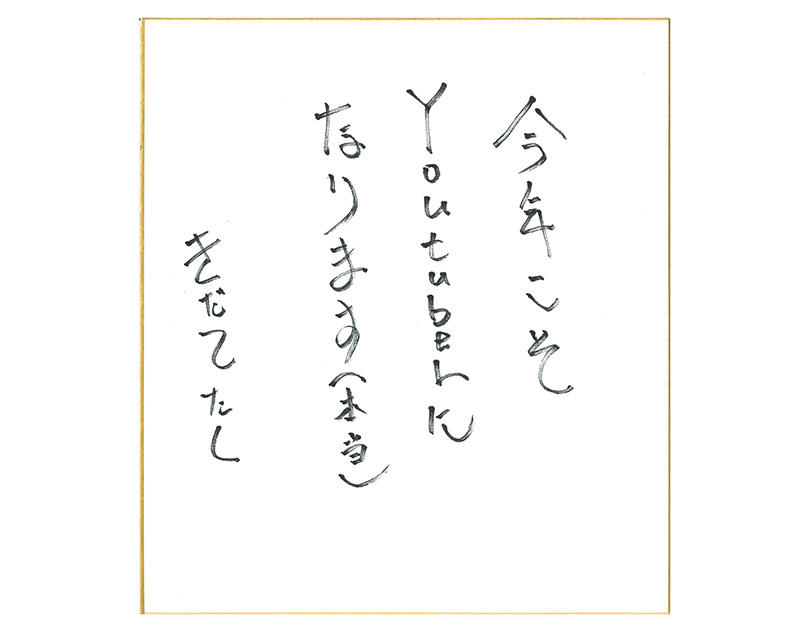 今年こそ
Youtuberに
なります(本当)
きだてたく